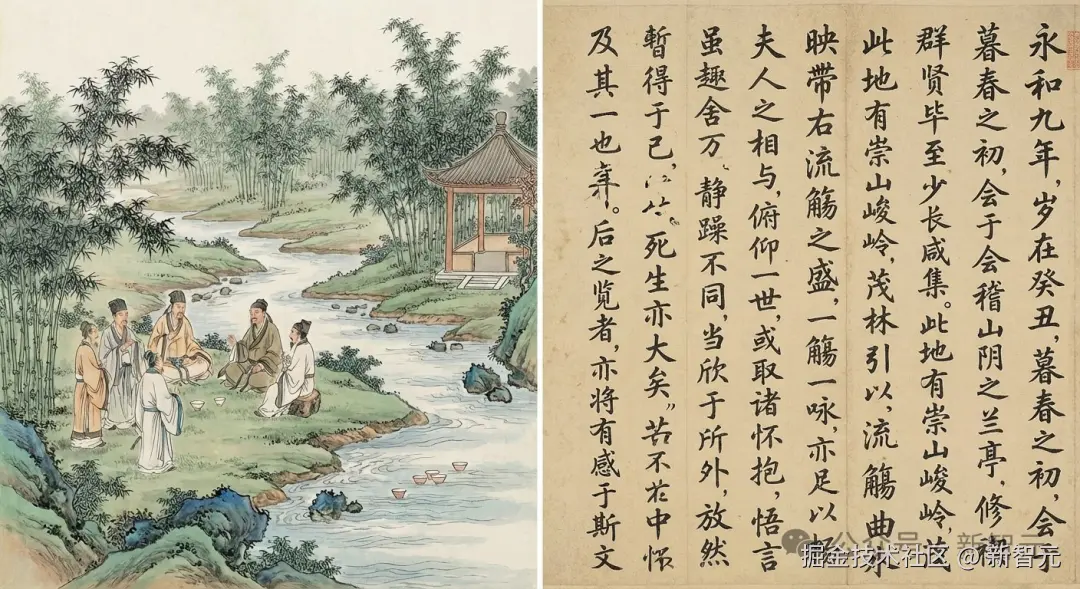 永和九年,岁在癸丑,暮春之初,会于
暮春之初,会于会稽山阴之兰亭,修
群贤毕至少长咸集。此地有崇山峻岭,茂
此地有崇山峻岭,茂林引以,流觞曲水
映带右流觞之盛,一觞一咏,亦足以
夫人之相与,俯仰一世,或取诸怀抱,悟言
虽趣舍万、静躁不同,当欣于所外,放然
暫得于己,死生亦大矣。”苦不中怀
及其一也。后之览者,亦将有感于斯文
公众号 新智元
掘金技术社区 @新智元